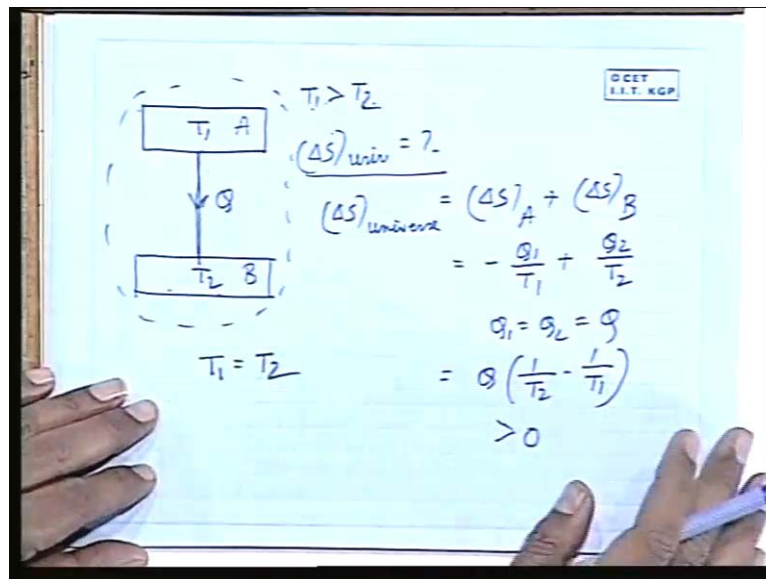 © CET
I.I.T. KGP
T₁ > T₂
T₁ A
(ΔS)univ = ?
Q
(ΔS)universe = (ΔS)A + (ΔS)B
= - Q₁/T₁ + Q₂/T₂
T₂ B
Q₁ = Q₂ = Q
T₁ = T₂
= Q (1/T₂ - 1/T₁)
> 0